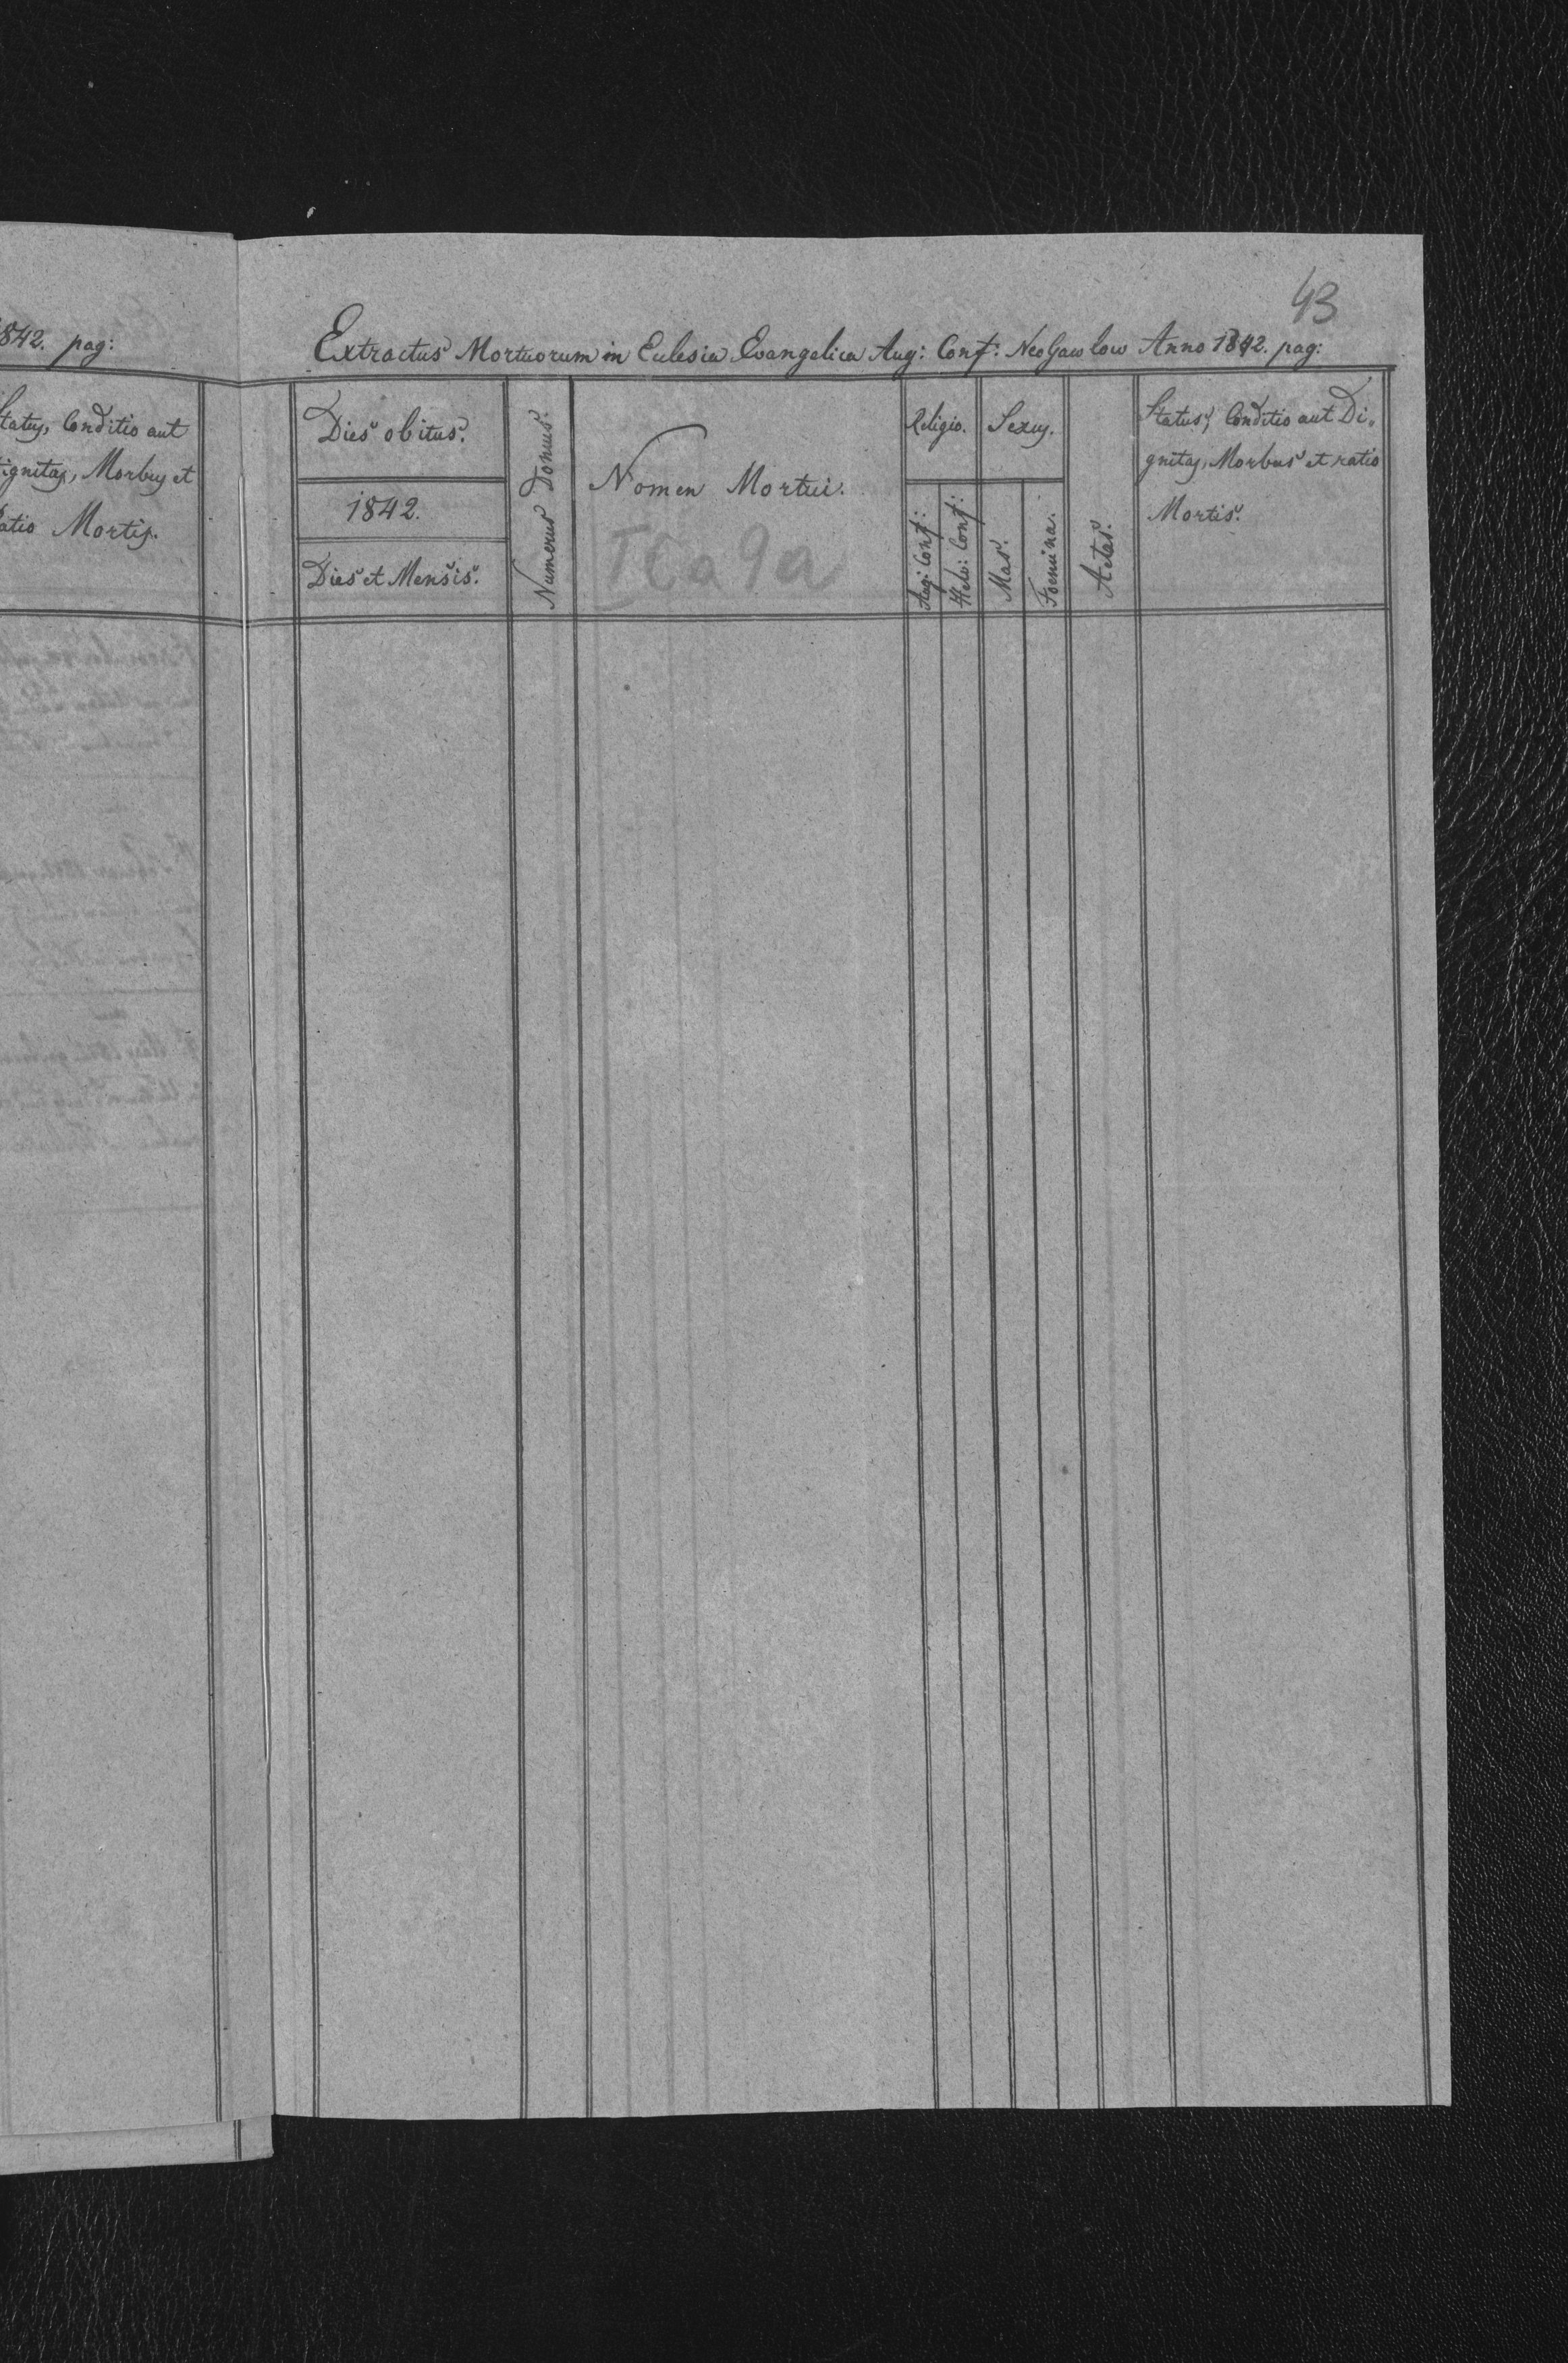 1842. pag:
Status, Conditio aut
Dignitas, Morbus et
ratio Mortis.
43
Extractus Mortuorum in Eclesia Evangelica Aug: Conf: NeoGawlow Anno 1842. pag:
Dies obitus.
1842.
Dies et Mensis.
Numerus Domus.
Nomen Mortui.
I C a 9 a
Religio.
Aug: Conf:
Helv: Conf:
Sexus.
Mas.
Foemina.
Aetas.
Status, Conditio aut Di„
gnitas, Morbus et ratio
Mortis.